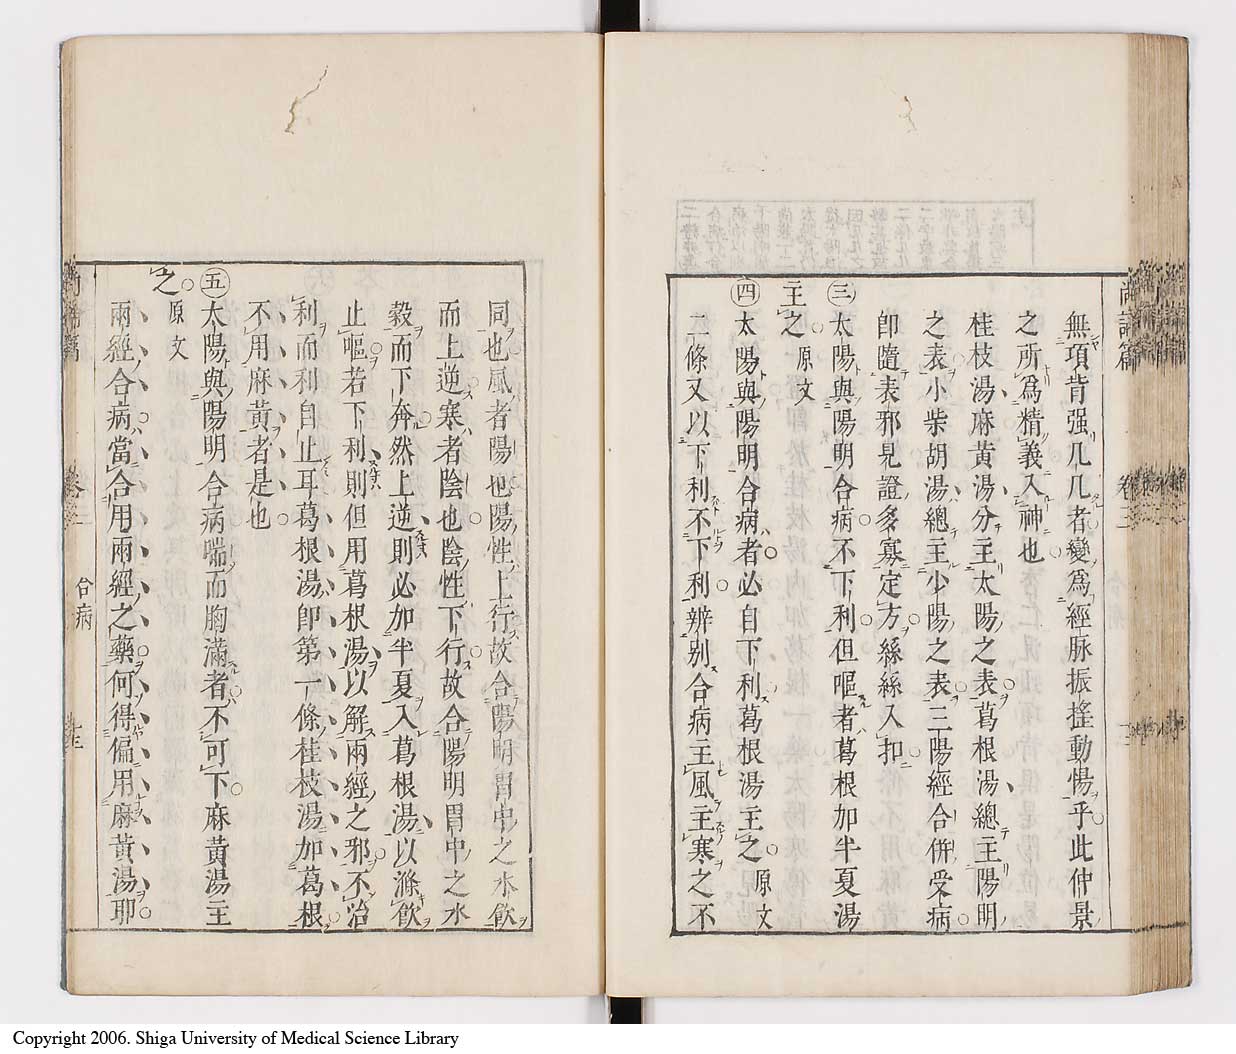 尚論篇　卷三
無項背强几几者變爲經脉振搖動惕乎此仲景
之所爲精義入神也
桂枝湯麻黃湯分主太陽之表葛根湯總主陽明
之表小柴胡湯總主少陽之表三陽經合併受病
卽隨表邪見證多寡定方絲絲入扣
㊂太陽與陽明合病不下利但嘔者葛根加半夏湯
主之　原文
㊃太陽與陽明合病者必自下利葛根湯主之　原文
二條又以下利不下利辨别合病主風主寒之不
同也風者陽也陽性上行故合陽明胃中之水飮
而上逆寒者陰也陰性下行故合陽明胃中之水
穀而下奔然上逆則必加半夏入葛根湯以滌飮
止嘔若下利則但用葛根湯以解兩經之邪不治
利而利自止耳葛根湯卽第一條桂枝湯加葛根
不用麻黃者是也
㊄太陽與陽明合病喘而胸滿者不可下麻黃湯主
之　原文
兩經合病當合用兩經之藥何得偏用麻黃湯耶
合病
Copyright 2006. Shiga University of Medical Science Library